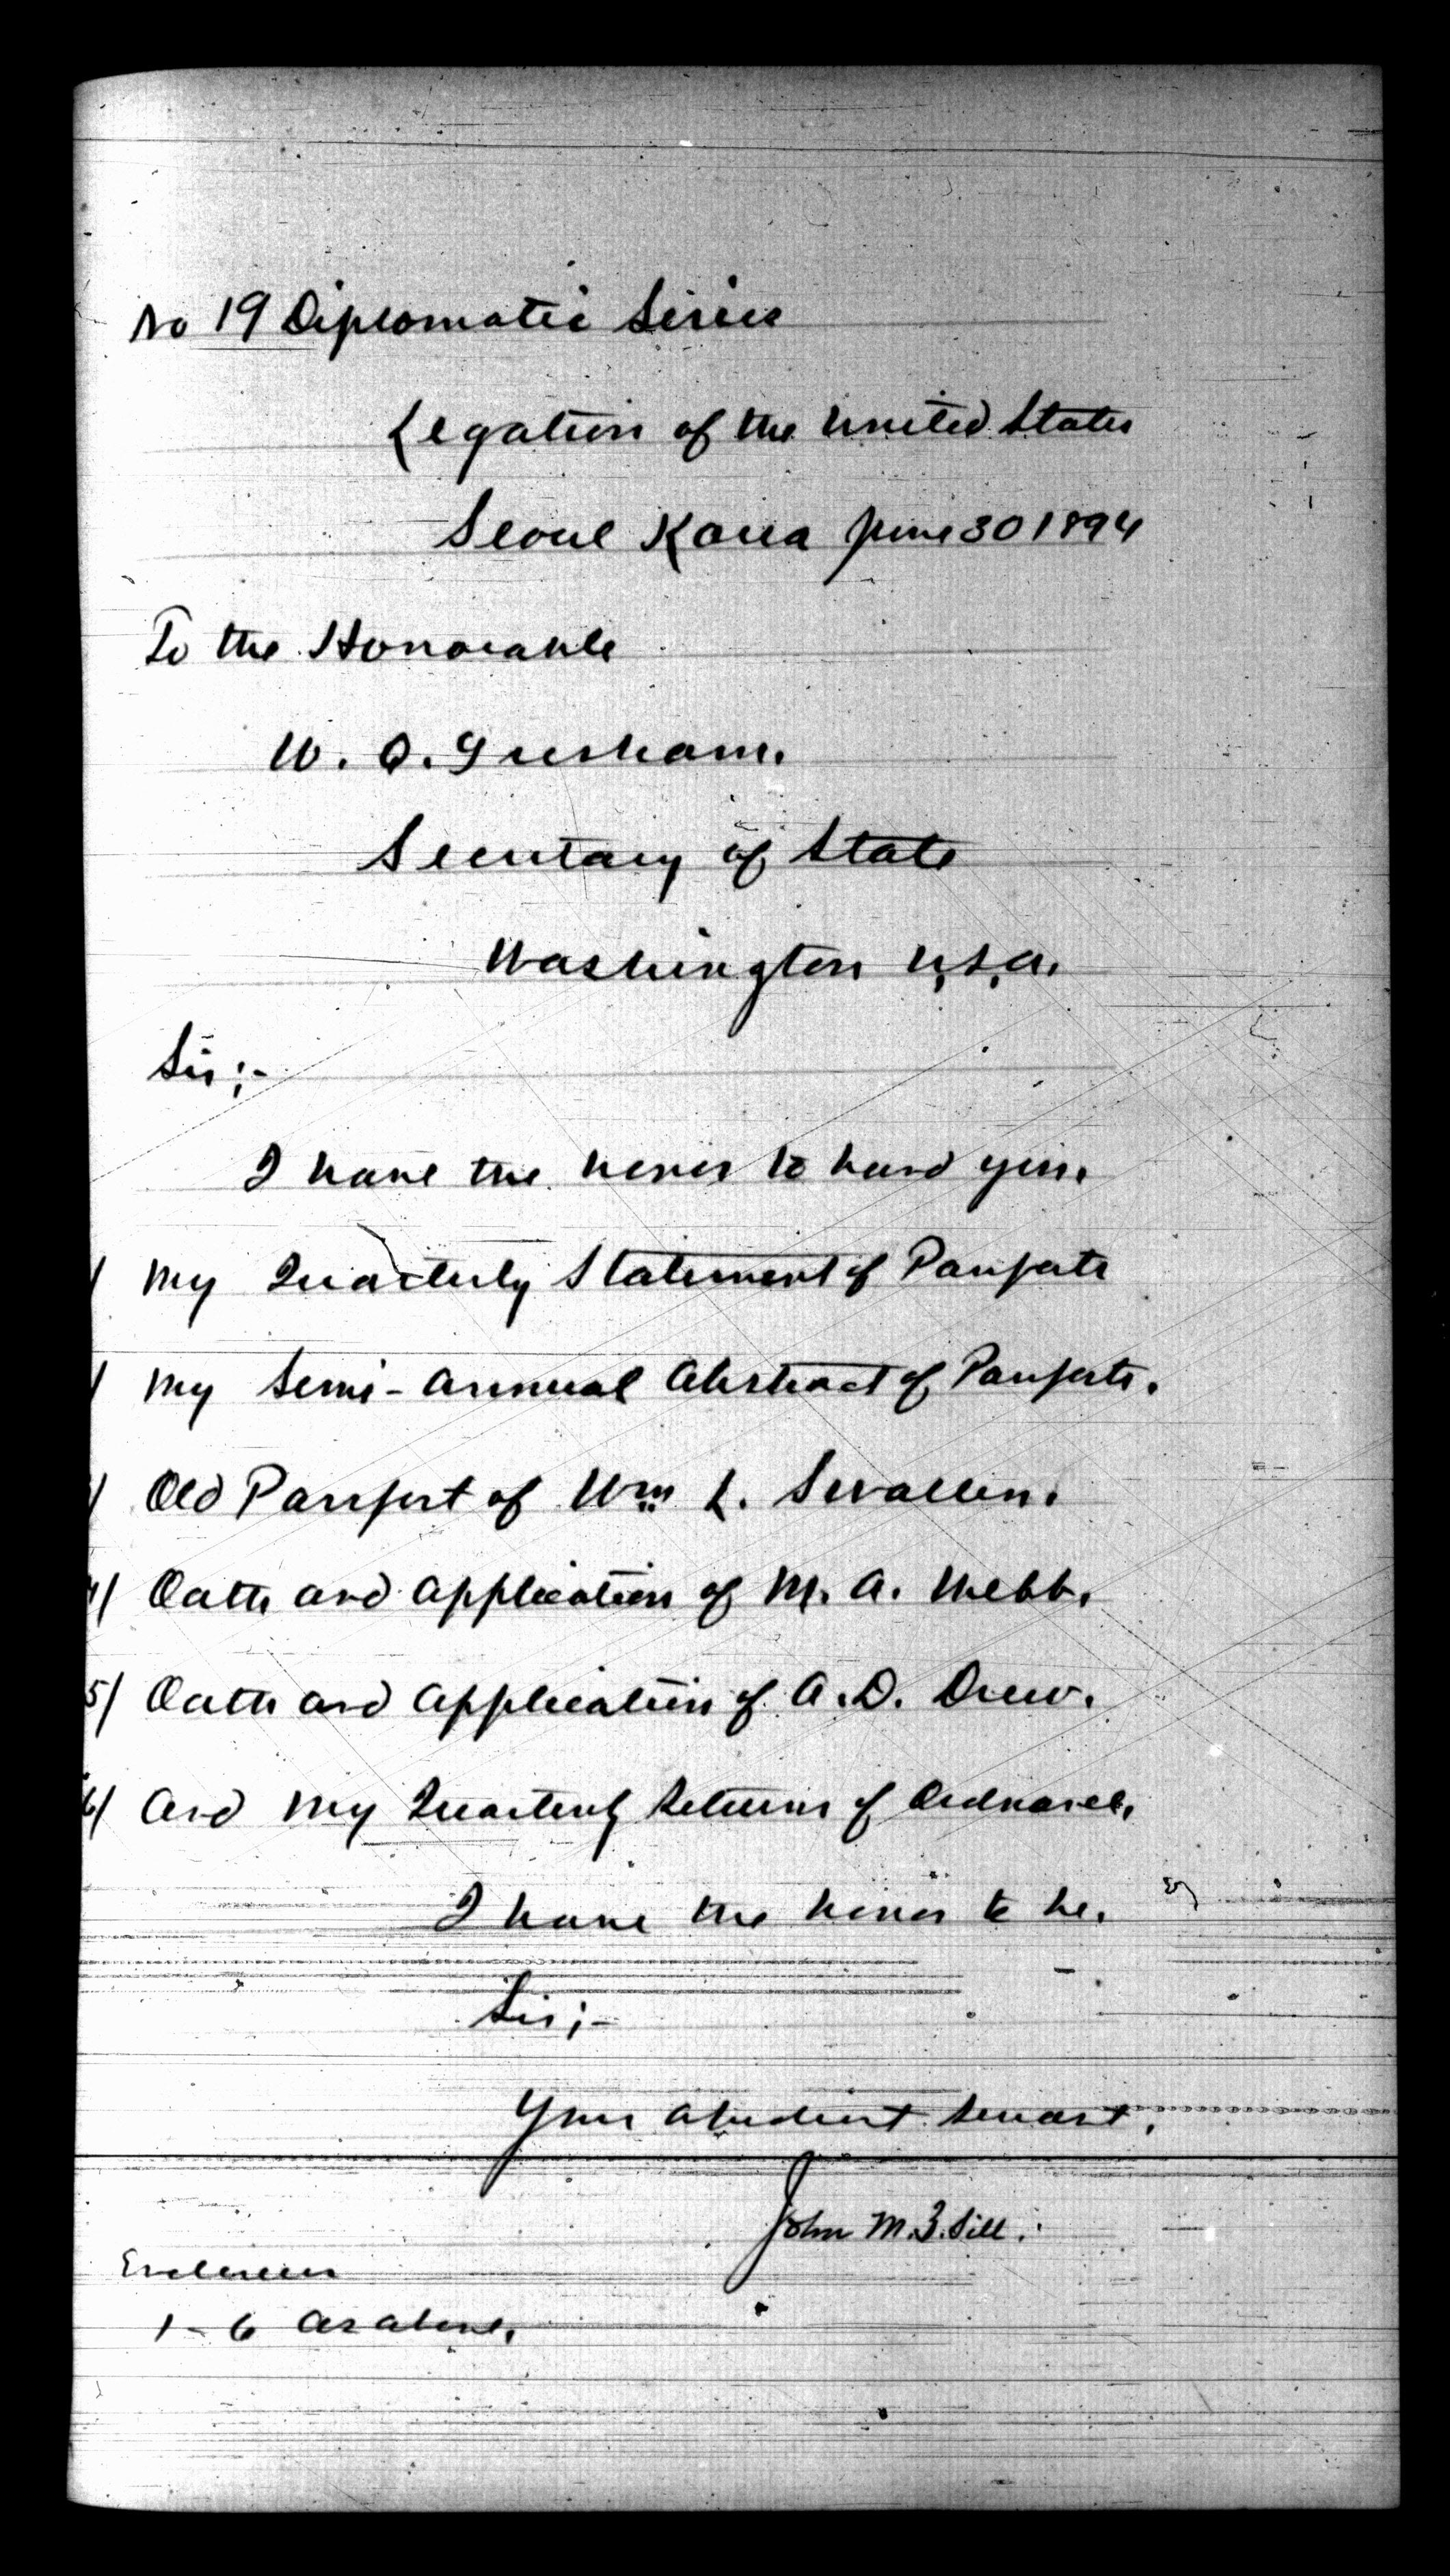 No 19 Diplomatic Series
Legation of the United States
Seoul Korea June 30 1894
To the Honorable
W. Q. Gresham.
Secretary of State
Washington U.S.A.
Sir;-
I have the honor to hand you.
/ My Quarterly Statement of Passports
/ My Semi-Annual Abstract of Passports.
/ Old Passport of Wm L. Swallen.
4/ Oath and Application of M. A. Webb.
5/ Oath and Application of A. D. Drew.
6/ And My Quarterly Returns of Ordnance.
I have the honor to be.
Sir;-
Your obedient servant.
John M. B. Sill.
Enclosures
1-6 as above.